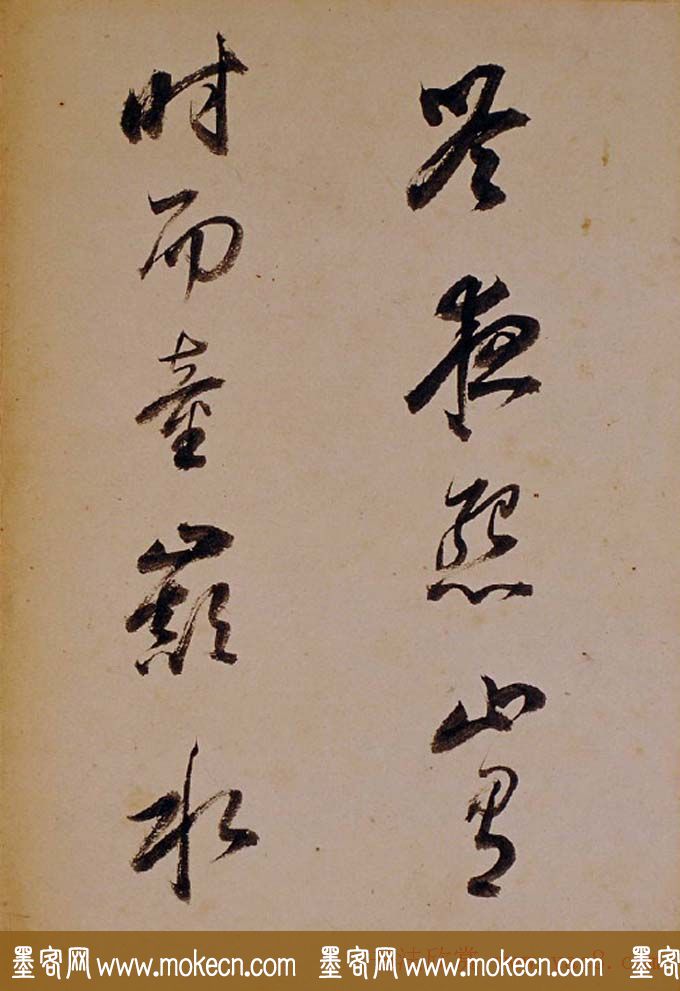 咎夜愆山有
时而童巅水
墨客网 www.mokecn.com 墨客网 www.mokecn.com 墨客